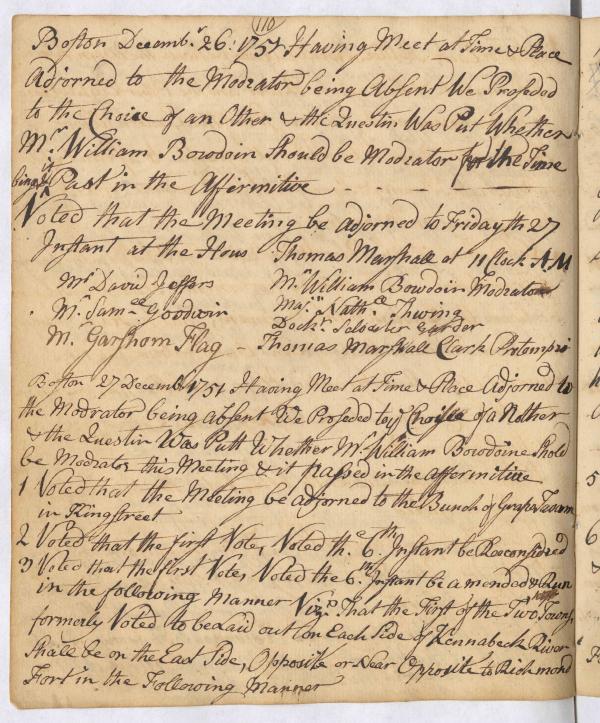 110
Boston Decembr. 26: 1751 Having Meet at Time & Place
Adjorned to the Modrator being Absent We Proseded
to the Choice of an Other & the Questin Was Put Whether
Mr. William Bowdoin Should be Modrator for the Time
being & it Past in the Affirmitive
Voted that the Meeting be adjorned to Friday th 27
Instant at the Hous Thomas Marshall at 11 Clock A M
Mr David Jeffers Mr. William Bowdoin Modrator
Mr. Samll Goodwin Majr. Nathll Thwing
Dockr. Selvester Garder
Mr. Garshom Flag - Thomas Marshall Clark Protempri
Boston 27 Decembr 1751 Having Meet at Time & Place Adjorned to
the Modrator being absent We Proseded to ye Choise of a Nother
& the Questin Was Putt Whether Mr. William Bowdoine Shold
be Modrator this Meeting & it passed in the affermitive
1 Voted that the Meeting be adjorned to the Bunch of Grapes Tavarn
in Kingstreet
2 Voted that the first Vote, Voted the 6th Instant be Reaconsidred
3 Voted that the first Vote, Voted the 6th. Instant be amended & Run
in the following Manner Vizt. That the First of the Two Towns,
formorly Voted to be Laid out on Each Side of Kennabeck River
Shall be on the East Side, Opposite or Near Opposite to Richmond
Fort in the Following Manner